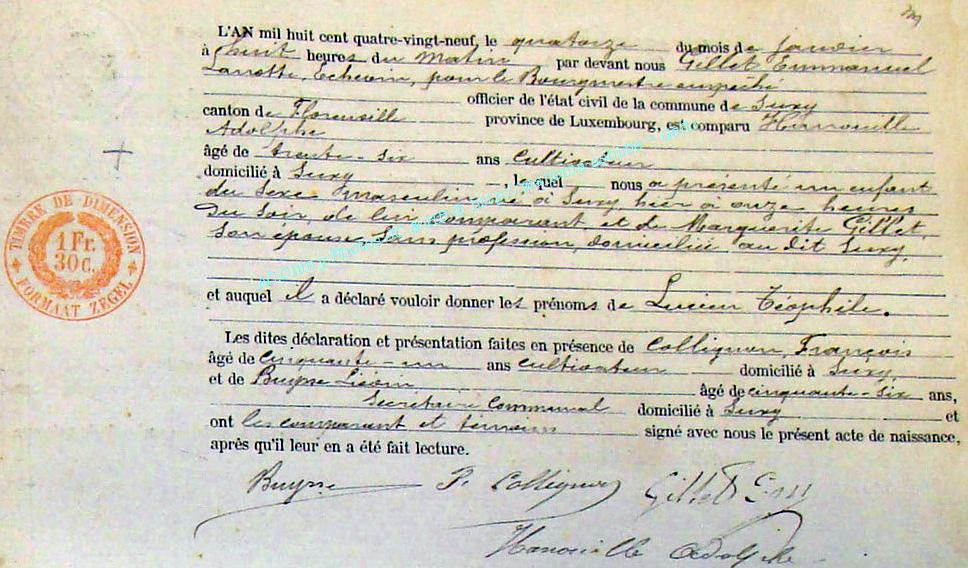 L'AN mil huit cent quatre-vingt-neuf, le quatorze du mois de Janvier
à huit heures du Matin par devant nous Gillet Emmanuel
Echevin, pour le Bourgmestre empêché
officier de l'état civil de la commune de Suxy
canton de Florenville province de Luxembourg, est comparu Hanouille
Adolphe
âgé de trente-six ans Cultivateur
domicilié à Suxy, lequel nous a présenté un enfant
du Sexe masculin né à Suxy hier à onze heures
du Soir, de lui comparant et de Marguerite Gillet,
son épouse, sans profession, domiciliée au dit Suxy,
et auquel il a déclaré vouloir donner les prénoms de Lucien Téophile.
Les dites déclaration et présentation faites en présence de Collignon, François
âgé de Cinquante-un ans cultivateur domicilié à Suxy,
et de Buysse âgé de cinquante-six ans,
Secrétaire Communal domicilié à Suxy et
ont les comparant et témoins signé avec nous le présent acte de naissance,
après qu'il leur en a été fait lecture.
Buysse F. Collignon Gillet Em
Hanouille Adolphe
TIMBRE DE DIMENSION
1 Fr.
30 C.
FORMAAT ZEGEL